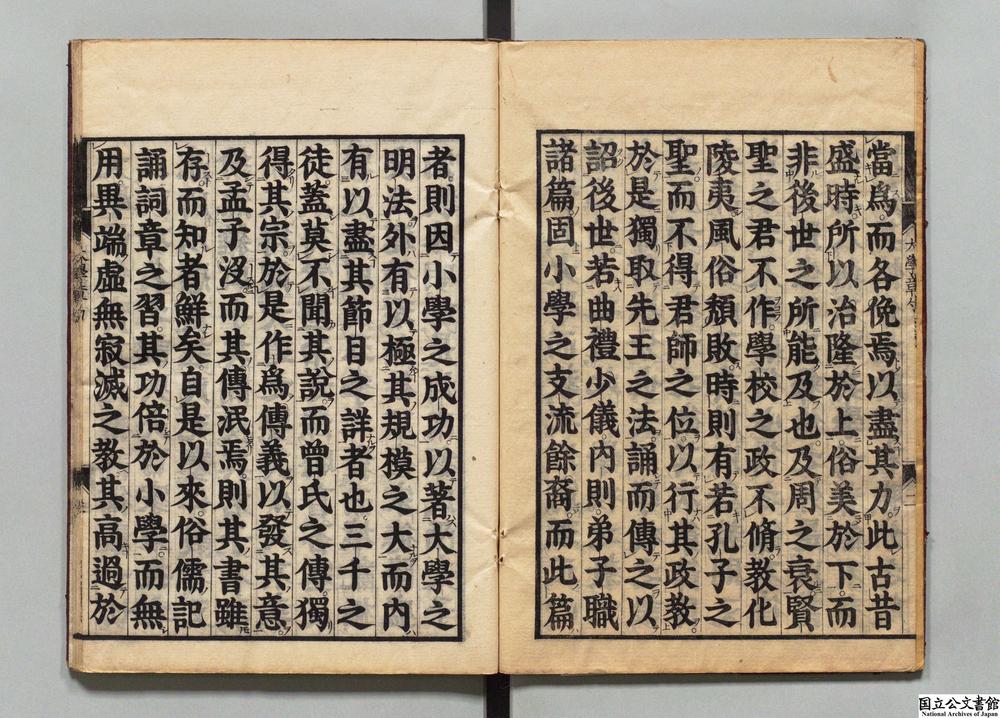 當爲而各俛焉以盡其力此古昔
盛時所以治隆於上俗美於下而
非後世之所能及也及周之衰賢
聖之君不作學校之政不脩敎化
陵夷風俗頽敗時則有若孔子之
聖而不得君師之位以行其政敎
於是獨取先王之法誦而傳之以
詔後世若曲禮少儀內則弟子職
諸篇固小學之支流餘裔而此篇
者則因小學之成功以著大學之
明法外有以極其規模之大而內
有以盡其節目之詳者也三千之
徒蓋莫不聞其說而曾氏之傳獨
得其宗於是作爲傳義以發其意
及孟子沒而其傳泯焉則其書雖
存而知者鮮矣自是以來俗儒記
誦詞章之習其功倍於小學而無
用異端虛無寂滅之敎其高過於
国立公文書館
National Archives of Japan